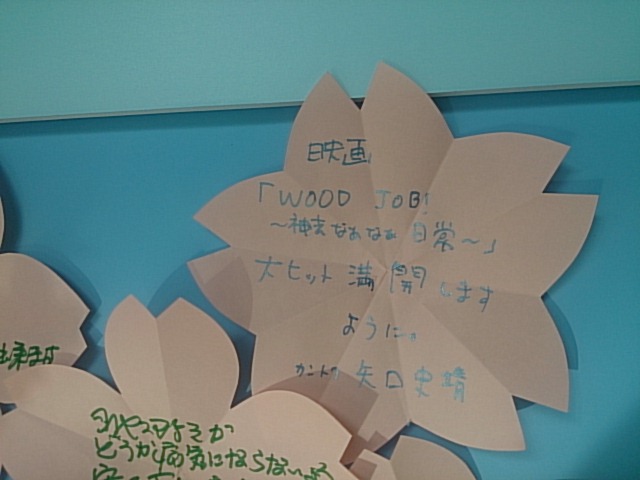 映画
「WOOD JOB!
~神去なあなあ日常~」
大ヒット満開します
ように。
カントク 矢口史靖
来ます
どうか病気にならないよう